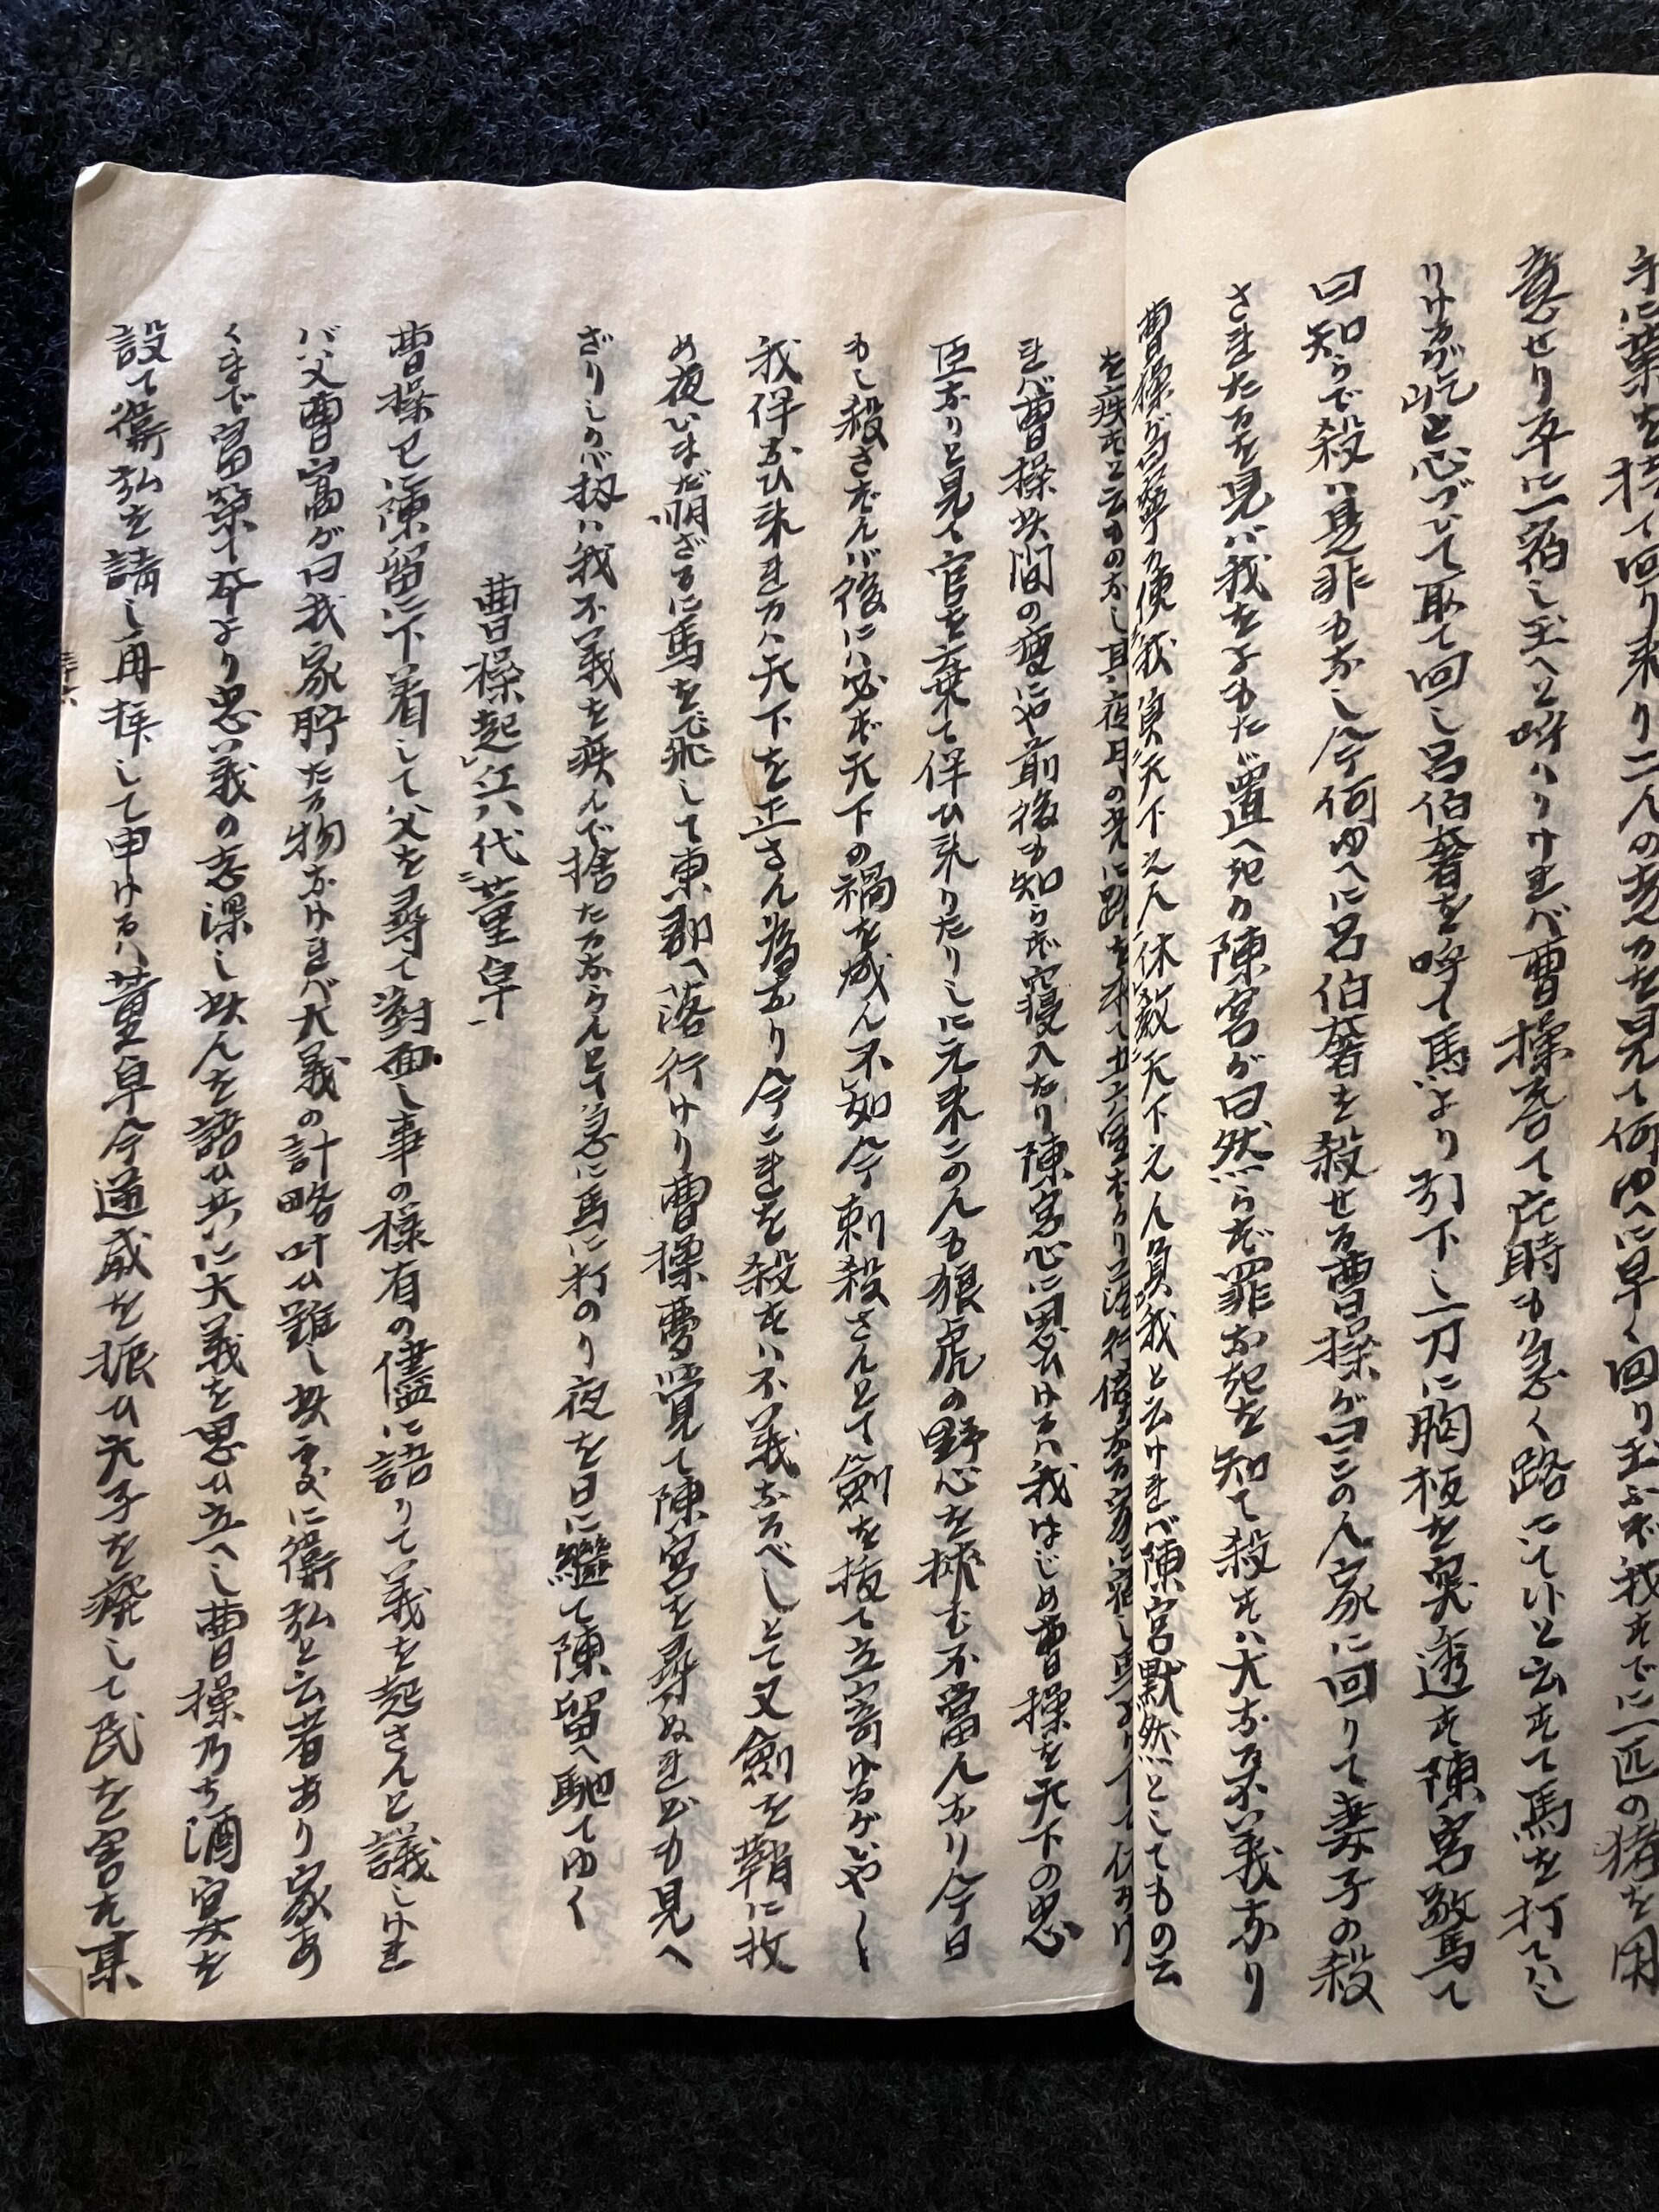 手に菓を持て回り来り二人の者を見て何ゆへに早く回り玉ふぞ我すでに一匹の猪を用
意せり平に一宿し玉へと呼ハりけれバ曹操答て此時も急く路にて候と云すて馬を打てハし
りけるが屹と心づひて取て回し呂伯奢を呼て馬より引下し一刀に胸板を突透す陳宮驚て
曰知らで殺ハ是非もなし今何ゆへに呂伯奢を殺せる曹操が曰この人家に回りて妻子の殺
されたるを見バ我をよもたゞ置べきか陳宮が曰然らず罪なきを知て殺すハ大なる不義なり
曹操が曰寧ろ使我負天下之人休教天下之人負我と云けれバ陳宮默然としてもの云
を疾すと云ものなし其夜月の光に路を求て
れバ曹操昼間の疲にや前後も知らず寝入たり陳宮心に思ひけるハ我はじめ曹操を天下の忠
臣なりと見て官を棄て伴ひ来りたりしに元来この人も狼虎の野心を挾む不當人なり今日
もし殺さずんバ後に必ず天下の禍を成ん不如今刺殺さんとて劍を抜て立寄けるがいや〱
我伴なひ来れるハ天下を正さん為なり今これを殺すハ不義なるべしとて又劍を鞘に收
め夜いまだ明ざるに馬を飛して東郡へ落行けり曹操夢覚て陳宮を尋ぬれども見へ
ざりしかバ扨ハ我不義を疾んで捨たるならんとて急に馬に打のり夜を日に繼て陳留へ馳てゆく
曹操起兵代董卓
曹操已に陳留に下着して父を尋て對面し事の様有の儘に語りて義を起さんと議しけれ
バ父曹嵩が曰我家貯たる物なけれバ大義の計略叶ひ難し此家に衛弘と云者あり家あ
くまで富榮て本より忠義の志深し此人を語ひ共に大義を思ひ立べし曹操乃ち酒宴を
設て衛弘を請し再拝して申けるハ董卓今逼威を振ひ天子を廢して民を害す某